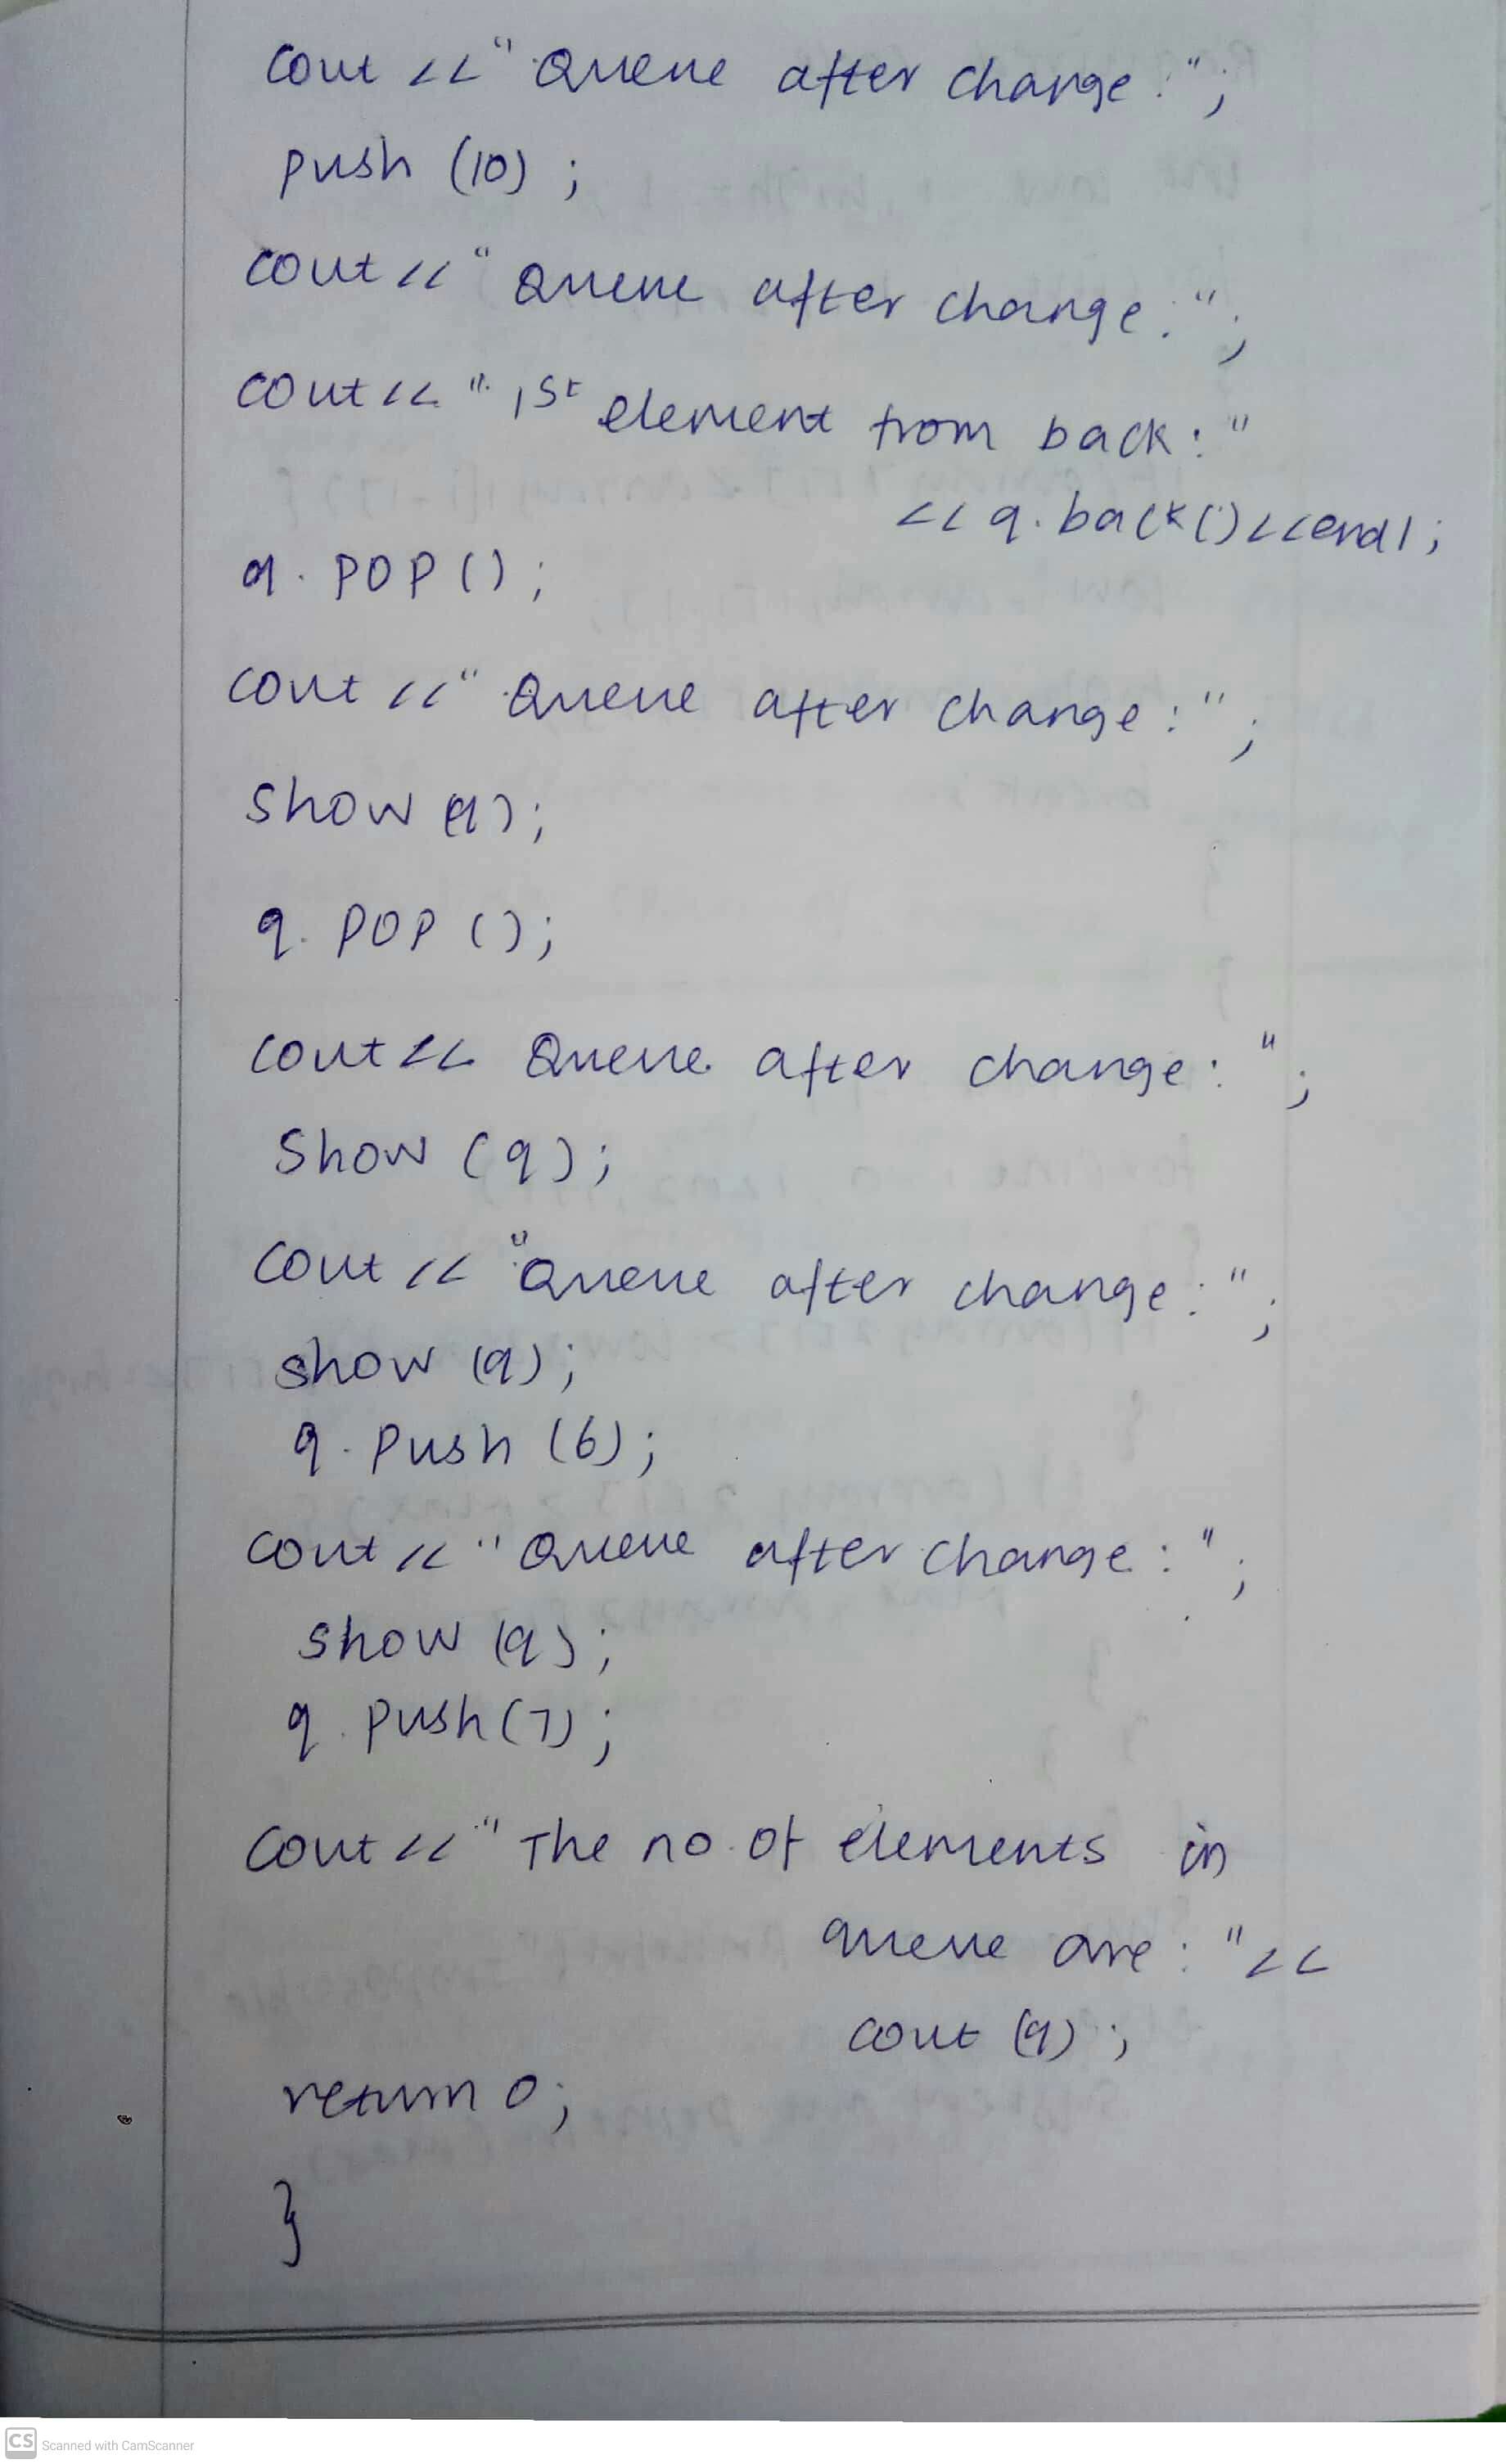 cout << " Queue after change : ";
push (10) ;
cout << " Queue after change : ";
cout << " 1st element from back : "
<< q. back() << endl ;
q. POP () ;
cout << " Queue after change : " ;
Show (q) ;
q. POP () ;
cout << Queue after change : " ;
Show (q) ;
cout << " Queue after change : " ;
show (q) ;
q. Push (6) ;
cout << " Queue after change : " ;
show (q) ;
q. Push (7) ;
cout << " The no. of elements in
queue are : " <<
cout (q) ;
return 0 ;
}
CS Scanned with CamScanner